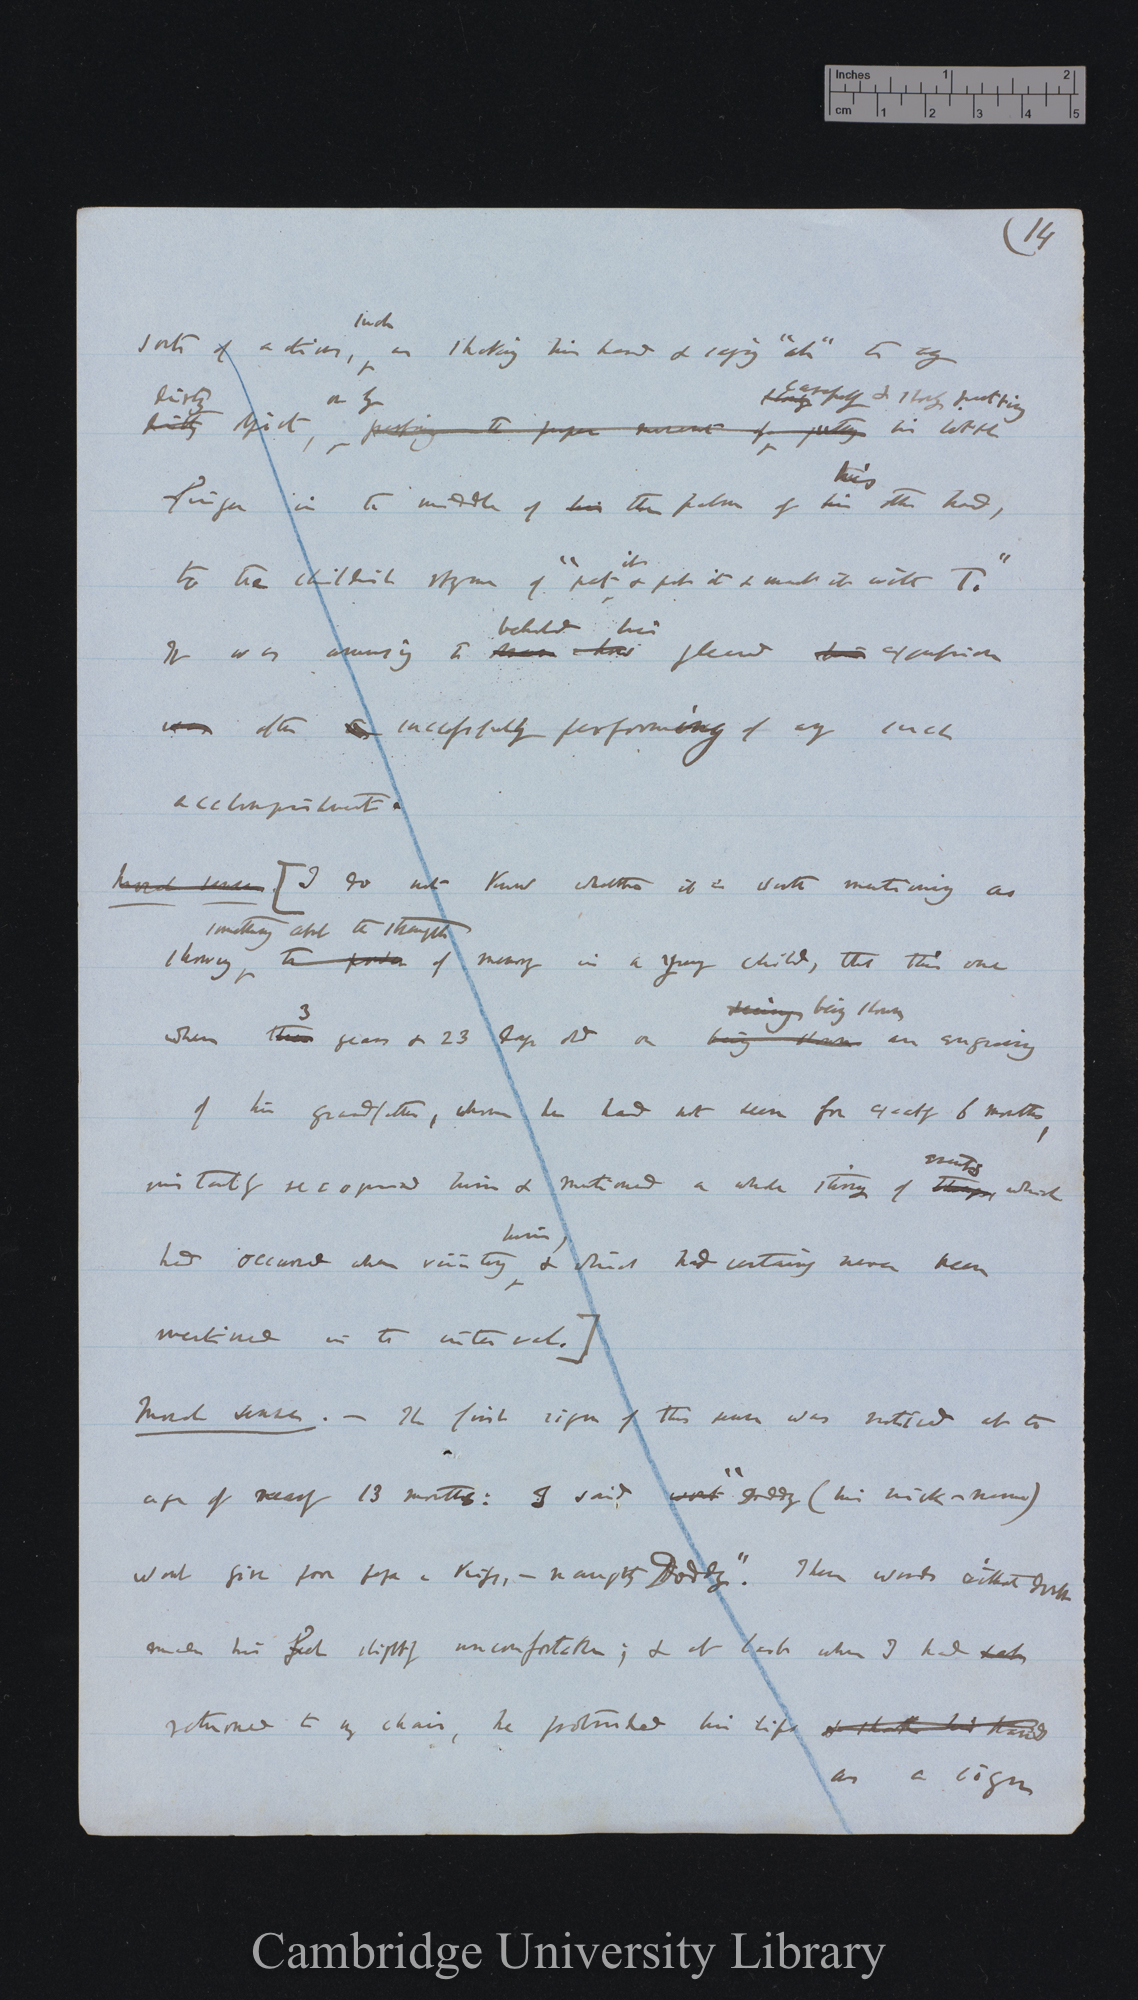 Inches 1 2
cm 1 2 3 4 5
(14
such
sorts of actions, as shaking his head & saying "ah" to any
dirty or by carefully & slowly putting
dirty object, his little
finger in the middle of his the palm of his his other hand,
to the childish rhyme of "pat it & pat it & mark it with T."
behold his
It was amusing to pleased his expression
was after successfully performing of any such
accomplishment.
Moral sense [I do not know whether it is worth mentioning as
something about the strength
showing the power of memory in a young child, that this one
3 seeing being shown
when three years & 23 days old on being shown an engraving
of his grandfather, whom he had not seen for exactly 6 months,
events
instantly recognised him & mentioned a whole string of things, which
him,
had occurred when visiting & which had certainly never been
mentioned in the interval.]
Moral sense. — The first sign of this sense was noticed at the
age of nearly 13 months: I said wont "Doddy (his nick-name)
wont give poor papa a kiss, — naughty Doddy". These words without doubt
made him feel slightly uncomfortable; & at last when I had
returned to my chair, he protruded his lips & shook his hand
as a sign
Cambridge University Library